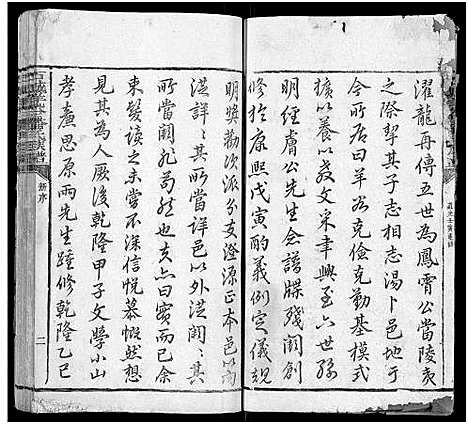 濯龍再傳五世為鳳霄公當陵夷
之際挈其子志相志湯卜邑地于
今所居曰羊石克儉克勤基模式
擴以養以教文采聿興至六世孫
明經膚公先生念譜牒殘闕創
修於康熙戊寅酌義例定儀規
明獎勸次派分支澄源正本邑以內
詳其所當詳邑以外闕其
所當闕非苟然也夫亦曰實而已余
束髮讀之未嘗不深信悅慕慨然想
見其為人厥後乾隆甲子文學小山
孝廉思原兩先生踵修乾隆乙巳
新序
二